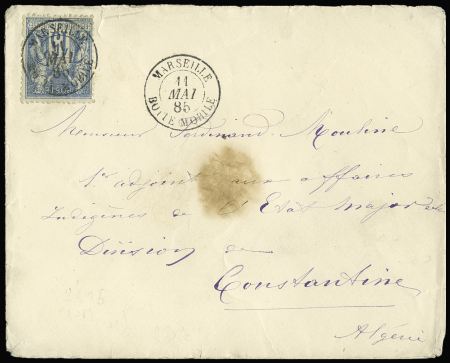 MARSEILLE
15
MAI
85
MARSEILLE
11
MAI
85
BOITE MOBILE
Monsieur Ferdinand Mouline
1er adjoint aux affaires
Indigènes de l'Etat major de
Division de
Constantine
Algérie